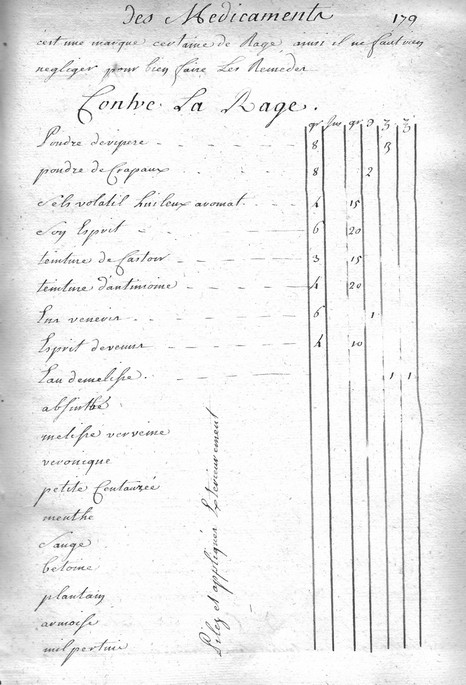 des Medicaments 179
c'est une marque certaine de Rage ainsi il ne faut rien
negliger pour bien faire Les Remedes
Contre La Rage.
gr jus gr ℈ ʒ ℥
Poudre devipere 8 ß
poudre de Crapaux 8 2
Sels volatil huileux aromat. 4 15
Son Esprit 6 20
teinture de Castor 3 15
teinture d'antimoine 4 20
Ens veneris 6 1
Esprit devenus 4 10
Eau demelisse. 1 1
absinthe
melisse verveine
veronique
petite Centaurée
menthe
Sauge
betoine
plantain
armoise
milpertuis
Pilez et appliquéz Exterieurement